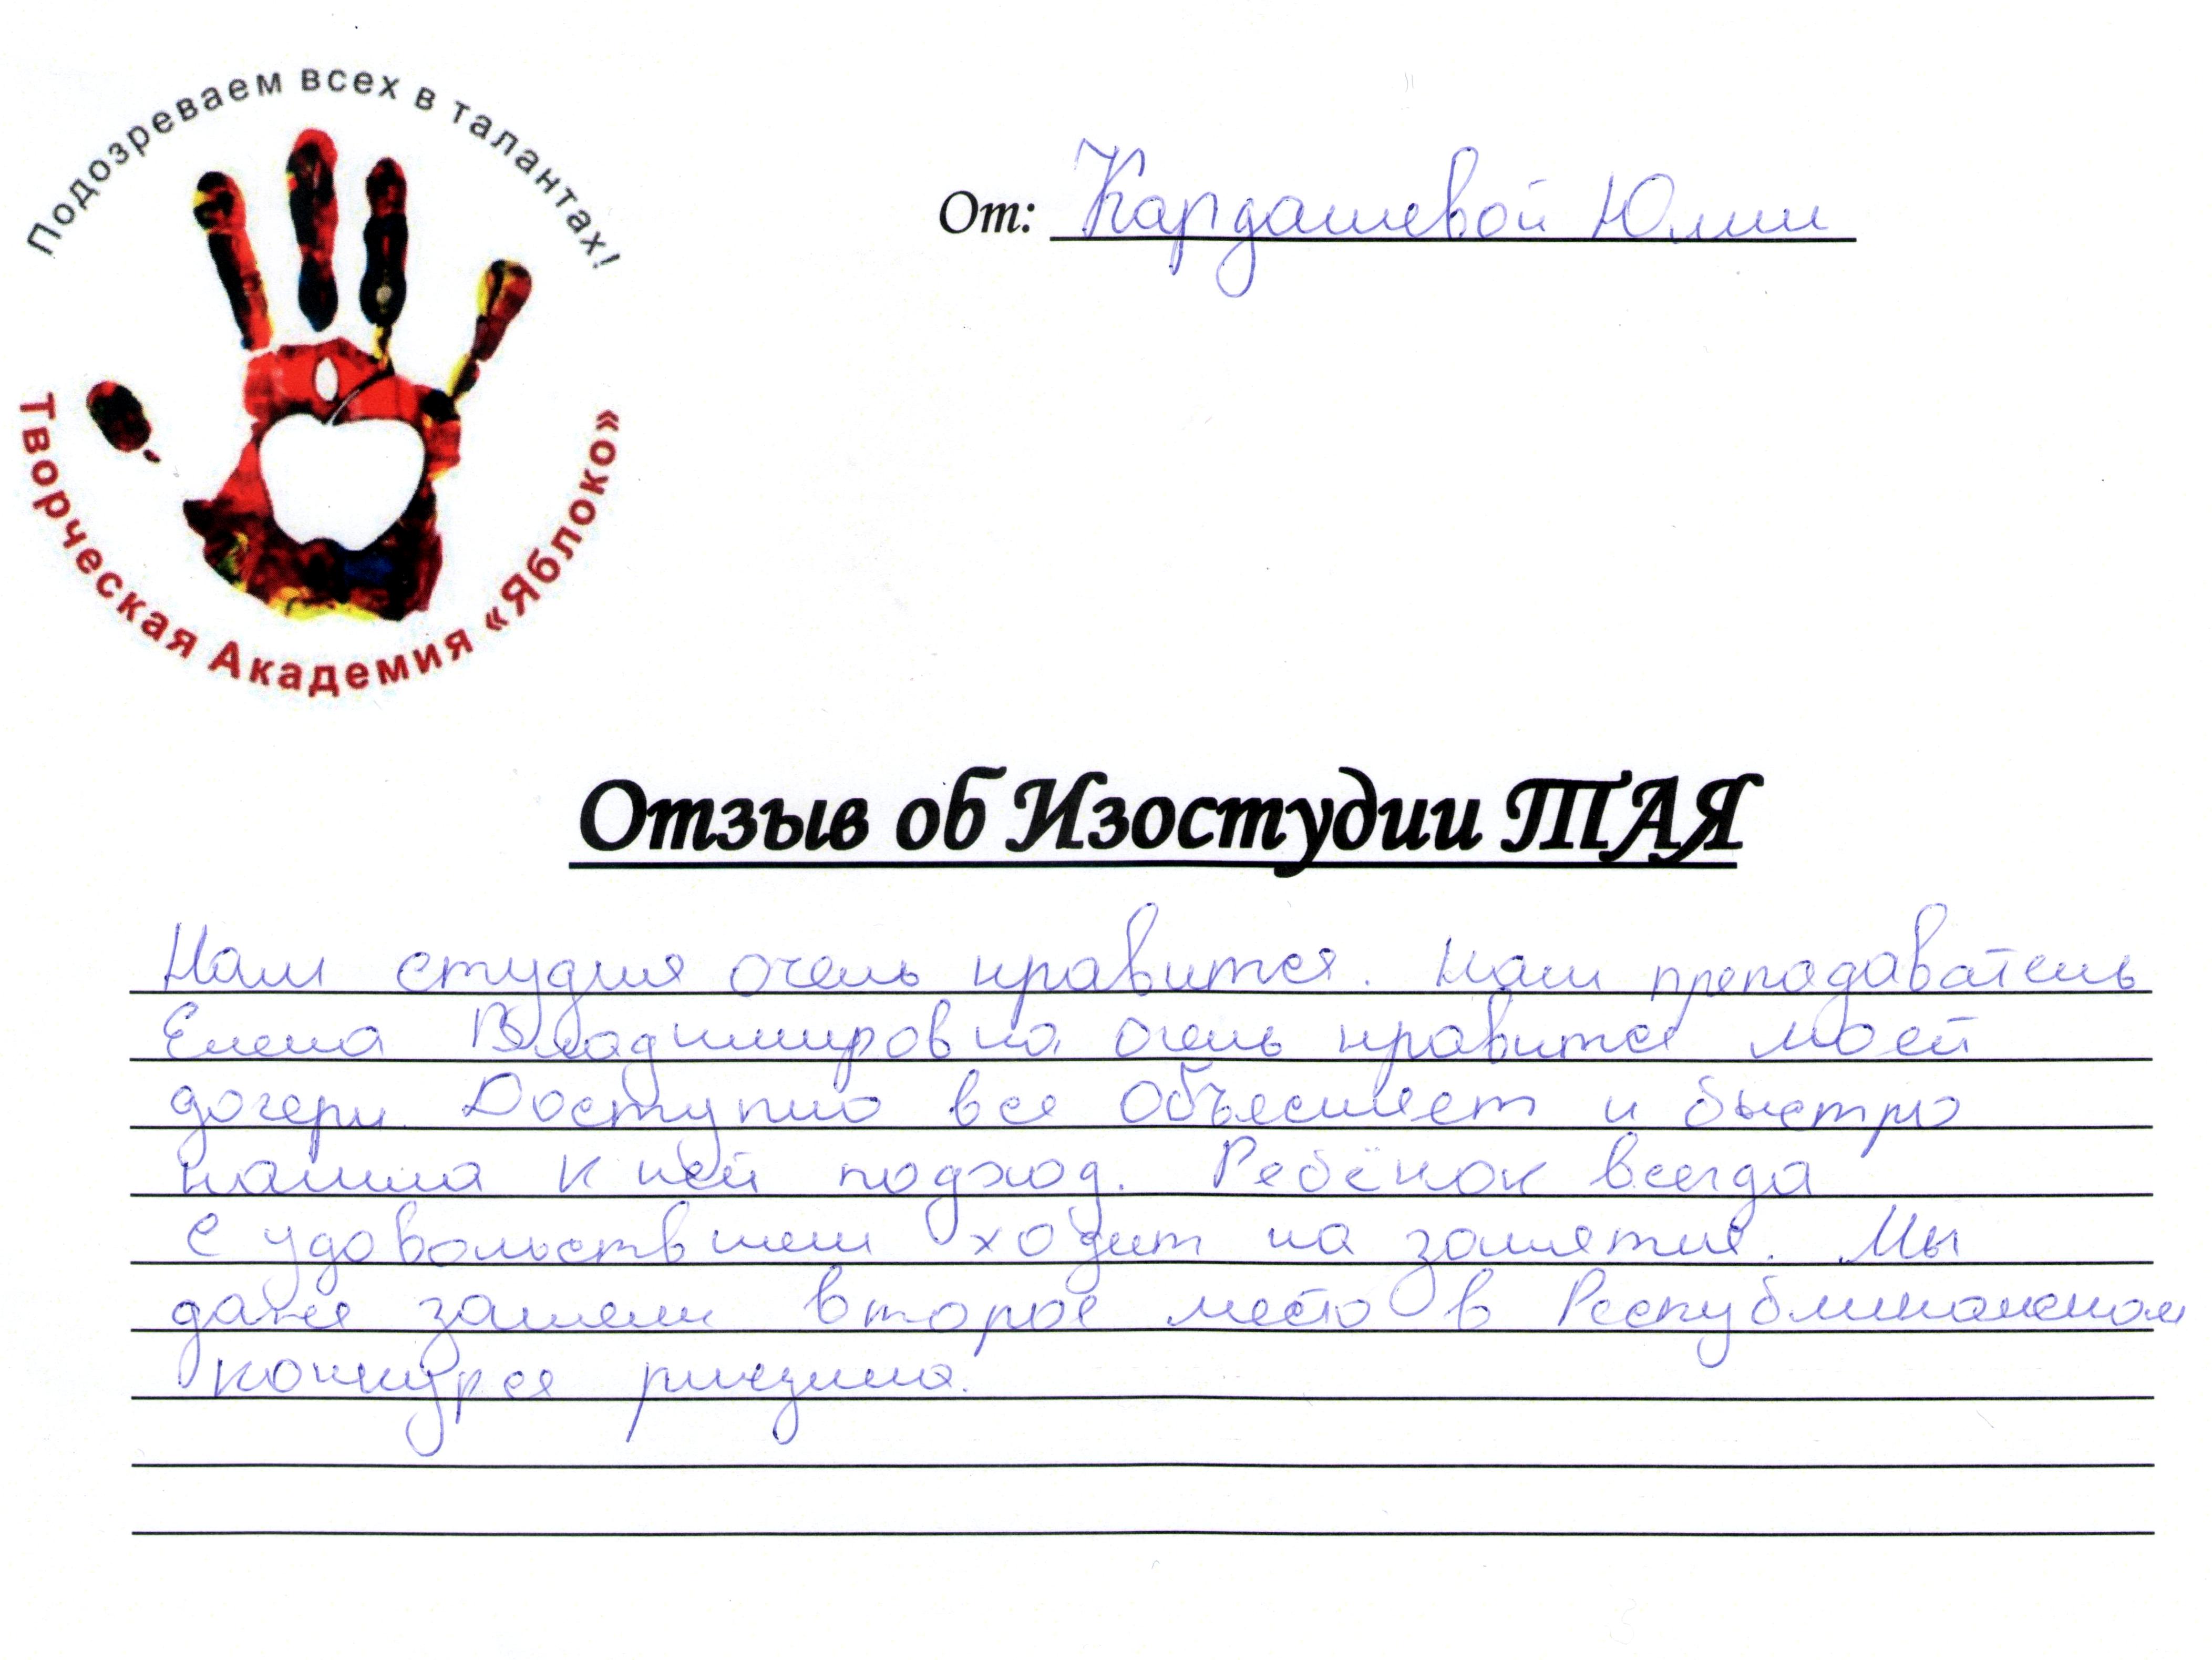 Подозреваем всех в талантах!
Творческая Академия «Яблоко»
От: Кардашевой Юлии
Отзыв об Изостудии ТАЯ
Нам студия очень нравится. Наш преподаватель
Елена Владимировна очень нравится моей
дочери. Доступно все объясняет и быстро
нашла к ней подход. Ребёнок всегда
с удовольствием ходит на занятия. Мы
даже заняли второе место в Республиканском
конкурсе рисунка.